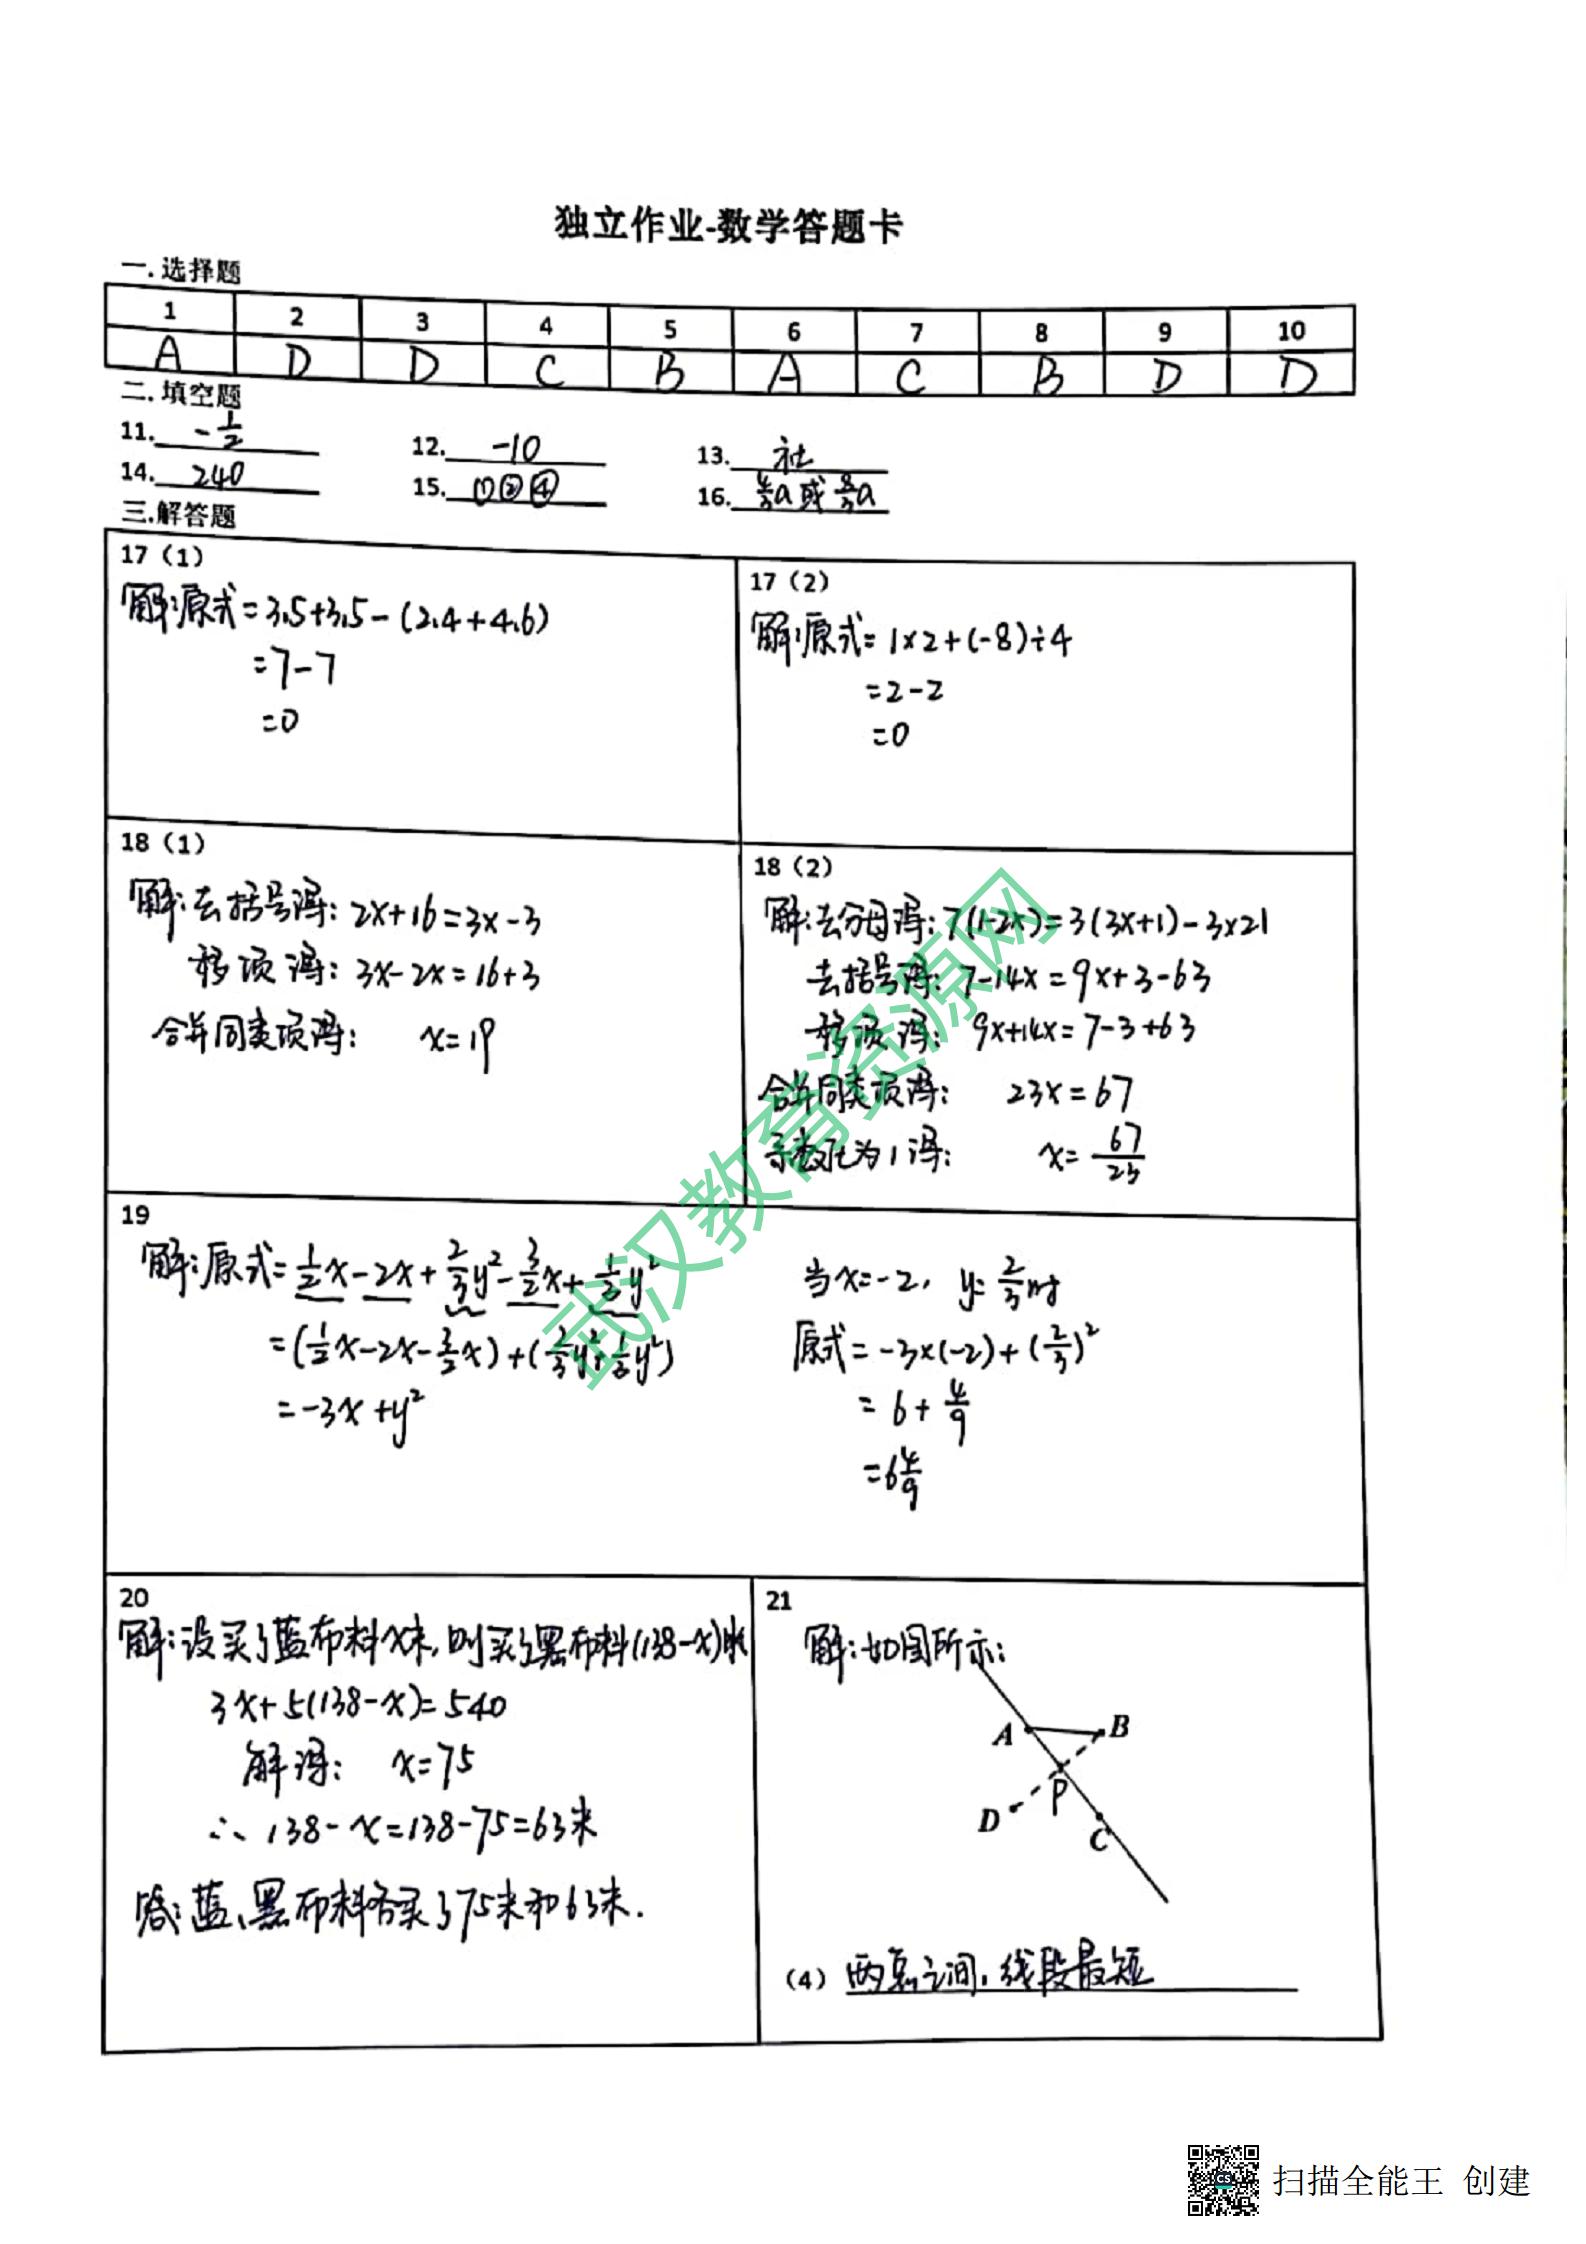 独立作业-数学答题卡
一.选择题
1 2 3 4 5 6 7 8 9 10
A D D C B A C B D D
二.填空题
11. -1/2 12. -10 13. 社
14. 240 15. ①②④ 16. 4/3a或8/3a
三.解答题
17（1）
解:原式=3.5+3.5-(2.4+4.6)
=7-7
=0
17（2）
解:原式=1×2+(-8)÷4
=2-2
=0
18（1）
解:去括号得:2x+16=3x-3
移项得:3x-2x=16+3
合并同类项得: x=19
18（2）
解:去分母得:7(1-2x)=3(3x+1)-3×21
去括号得:7-14x=9x+3-63
移项得:9x+14x=7-3+63
合并同类项得: 23x=67
系数化为1得: x=67/23
19
解:原式=1/2x-2x+2/3y²-3/2x+1/3y²
=(1/2x-2x-3/2x)+(2/3y²+1/3y²)
=-3x+y²
当x=-2, y=2/3时
原式=-3×(-2)+(2/3)²
=6+4/9
=6 4/9
20
解:设买了蓝布料x米,则买了黑布料(138-x)米
3x+5(138-x)=540
解得: x=75
∴138-x=138-75=63米
答:蓝、黑布料各买了75米和63米.
21
解:如图所示:
A B
P
D
C
（4）两点之间,线段最短
武汉教育资源网
CS
扫描全能王 创建